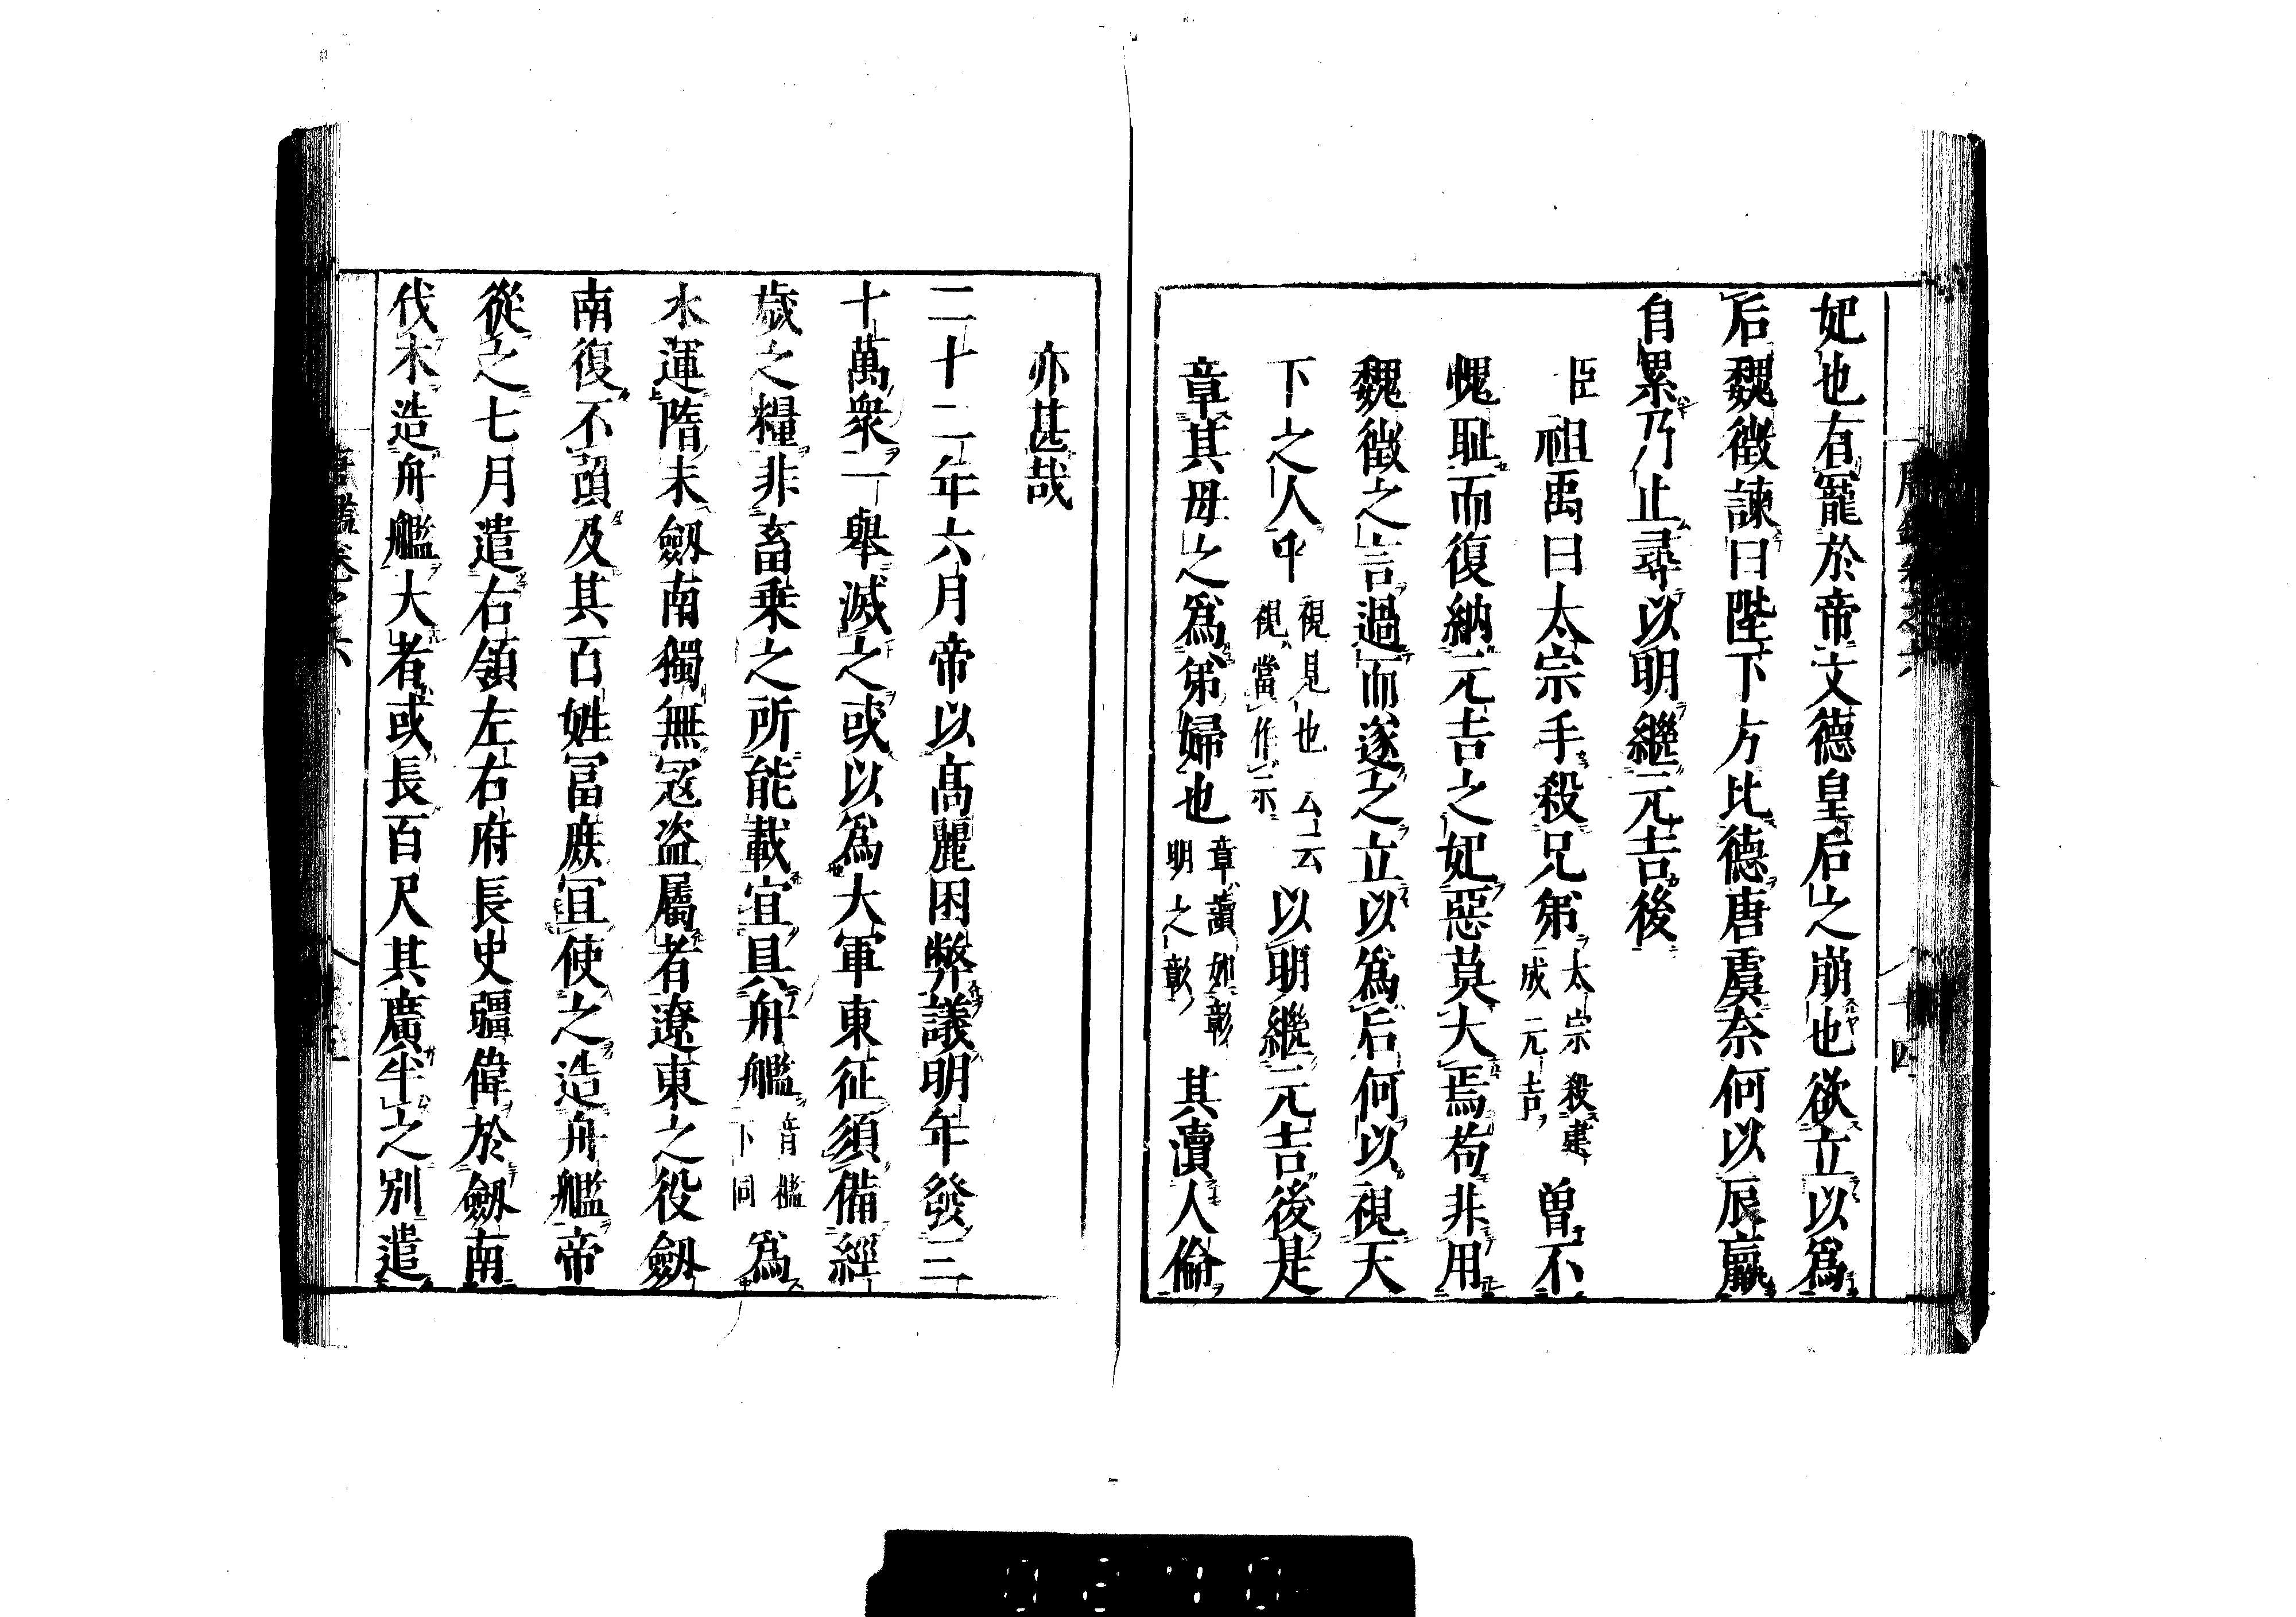 妃也有寵於帝文德皇后之崩也欲立以爲
后魏徵諫曰陛下方比德唐虞奈何以辰嬴
自累乃止尋以明繼元吉後
臣祖禹曰太宗手殺兄弟太宗殺建成元吉曾不
愧耻而復納元吉之妃惡莫大焉苟非用
魏徵之言過而遂之立以爲后何以視天
下之人中視見也云云視當作示以明繼元吉後是
章其母之爲弟婦也章讀如彰明之彰其瀆人倫
亦甚哉
二十二年六月帝以高麗困弊議明年發三
十萬衆一舉滅之或以爲大軍東征須備經
歲之糧非畜乗之所能載宜具舟艦音檻下同爲
水運隋末劔南獨無冦盗屬者遼東之役劔
南復不預及其百姓冨庶宜使之造舟艦帝
從之七月遣右領左右府長史疆偉於劔南
伐木造舟艦大者或長百尺其廣半之别遣